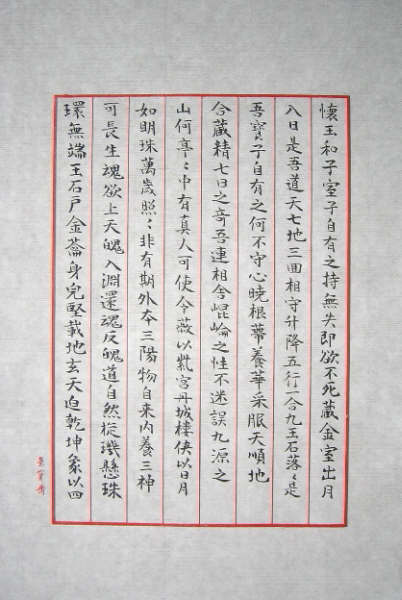 懷玉和子室子自有之持無失即欲不死藏金室出月
入日是吾道天七地三回相守升降五行一合九玉石落々是
吾寶子自有之何不守心曉根蒂養華采服天順地
合藏精七日之奇吾連相舍崐崘之性不迷誤九源之
山何亭々中有真人可使令薇以紫宮丹城樓俠以日月
如明珠萬歲照々非有期外本三陽物自来内養三神
可長生魂欲上天魄入淵還魂反魄道自然旋璣懸珠
環無端玉石戶金籥身完堅載地玄天迫乾坤象以四